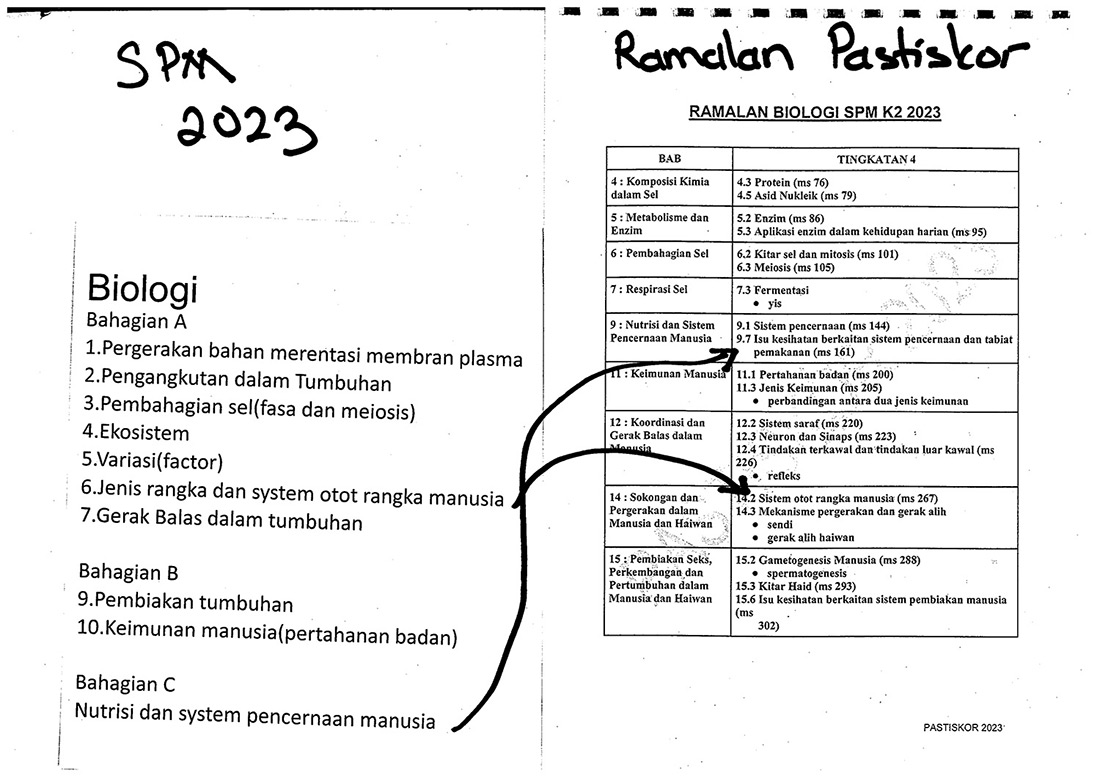 SPM
2023
Biologi
Bahagian A
1.Pergerakan bahan merentasi membran plasma
2.Pengangkutan dalam Tumbuhan
3.Pembahagian sel(fasa dan meiosis)
4.Ekosistem
5.Variasi(factor)
6.Jenis rangka dan system otot rangka manusia
7.Gerak Balas dalam tumbuhan
Bahagian B
9.Pembiakan tumbuhan
10.Keimunan manusia(pertahanan badan)
Bahagian C
Nutrisi dan system pencernaan manusia
Ramalan Pastiskor
RAMALAN BIOLOGI SPM K2 2023
BAB
TINGKATAN 4
4 : Komposisi Kimia
dalam Sel
4.3 Protein (ms 76)
4.5 Asid Nukleik (ms 79)
5 : Metabolisme dan
Enzim
5.2 Enzim (ms 86)
5.3 Aplikasi enzim dalam kehidupan harian (ms 95)
6 : Pembahagian Sel
6.2 Kitar sel dan mitosis (ms 101)
6.3 Meiosis (ms 105)
7 : Respirasi Sel
7.3 Fermentasi
• yis
9 : Nutrisi dan Sistem
Pencernaan Manusia
9.1 Sistem pencernaan (ms 144)
9.7 Isu kesihatan berkaitan sistem pencernaan dan tabiat
pemakanan (ms 161)
11 : Keimunan Manusia
11.1 Pertahanan badan (ms 200)
11.3 Jenis Keimunan (ms 205)
• perbandingan antara dua jenis keimunan
12 : Koordinasi dan
Gerak Balas dalam
Manusia
12.2 Sistem saraf (ms 220)
12.3 Neuron dan Sinaps (ms 223)
12.4 Tindakan terkawal dan tindakan luar kawal (ms
226)
• refleks
14 : Sokongan dan
Pergerakan dalam
Manusia dan Haiwan
14.2 Sistem otot rangka manusia (ms 267)
14.3 Mekanisme pergerakan dan gerak alih
• sendi
• gerak alih haiwan
15 : Pembiakan Seks,
Perkembangan dan
Pertumbuhan dalam
Manusia dan Haiwan
15.2 Gametogenesis Manusia (ms 288)
• spermatogenesis
15.3 Kitar Haid (ms 293)
15.6 Isu kesihatan berkaitan sistem pembiakan manusia
(ms
302)
PASTISKOR 2023